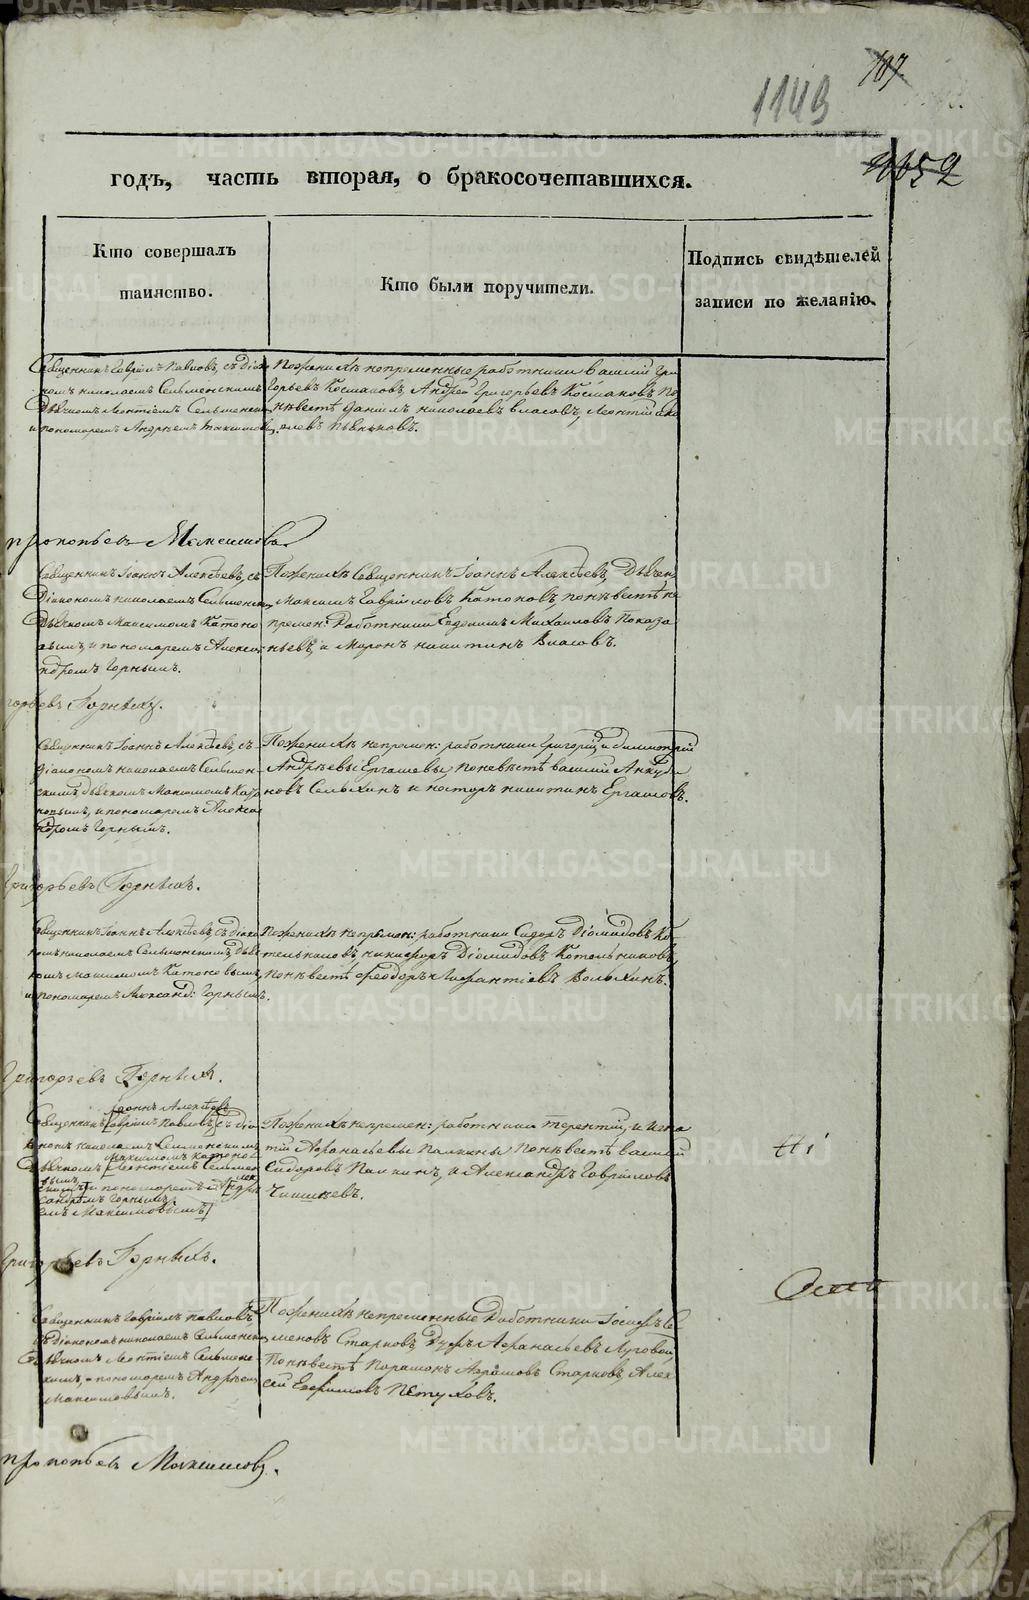 107
1149
1052
годъ, часть вторая, о бракосочетавшихся.
Кто совершалъ
таинство.
Кто были поручители.
Подпись свидѣтелей
записи по желанію.
Священникъ Гавріилъ Павловъ, съ Діако
номъ Николаемъ Сельменскимъ
Дьячкомъ Леонтіемъ Сельменски
и пономаремъ Андреемъ
По женихѣ непременные работники Василій Гри
горьевъ Космаковъ, Андрей Григорьевъ Космаковъ По
невѣстѣ Данилъ Николаевъ Власовъ, Леонтій
Пьянковъ.
Прокопьевъ Максимовъ
Священникъ Іоаннъ Алексѣевъ, съ
Діакономъ Николаемъ Сельменски
Дьячкомъ Максимомъ Катоно
вымъ, и пономаремъ Алекса
ндромъ Горнымъ.
По женихѣ Священникъ Іоаннъ Алексѣевъ, Дьячек
Максимъ Гавріиловъ Катоновъ, по невѣстѣ не
премен: Работники Евдокимъ Михаиловъ Показа
ньевъ, и Миронъ Никитинъ Власовъ.
горьевъ Горныхъ.
Священникъ Іоаннъ Алексѣевъ, съ
Діакономъ Николаемъ Сельмен-
скимъ, дьячкомъ Максимомъ Като
новымъ, и пономаремъ Алекса
ндромъ Горнымъ.
По женихѣ непремен: работники Григорій и Димитрій
Андреевы Ергашевы, по невѣстѣ Василій
новъ Сельхинъ и Несторъ Никитинъ Ергашовъ.
Григорьевъ Горныхъ.
Священникъ Іоаннъ Алексѣевъ, съ Діако
номъ Николаемъ Сельменскимъ, Дьяч
комъ Максимомъ Катоновымъ,
и пономаремъ Александ: Горнымъ.
По женихѣ непремен: работники Сидоръ Діомидовъ Ко
тельниковъ, Никифоръ Діомидовъ Котельниковъ,
по невѣстѣ Феодоръ Волохинъ.
Григорьевъ Горныхъ.
Іоаннъ Алексѣевъ
Священникъ [Гавріилъ Павловъ] съ Діа
кономъ Николаемъ Сельменскимъ
Максимомъ Катоно
Дьячкомъ [Леонтіемъ Сельмен
вымъ Алек
скимъ] и пономаремъ [Андре
сандромъ Горнымъ
емъ Максимовымъ]
По женихѣ непремен: работники Терентій, и Игна
тій Афанасьевы Палкины По невѣстѣ Василій
Сидоровъ Палкинъ, и Александръ Гавріиловъ
Григорьевъ Горныхъ.
Священникъ Гавріилъ Павловъ
съ Діакономъ Николаемъ Сельменски
Дьячкомъ Леонтіемъ Сельменс-
кимъ, и пономаремъ Андреемъ
Максимовымъ.
По женихѣ непременные Работники Іосифъ Се
меновъ Старковъ, Афанасьевъ Луговой,
По невѣстѣ Парамонъ Абрамовъ Старковъ, Алек
сей Евфимовъ Петуховъ.
Прокопьевъ Максимовъ.
METRIKI.GASO-URAL.RU